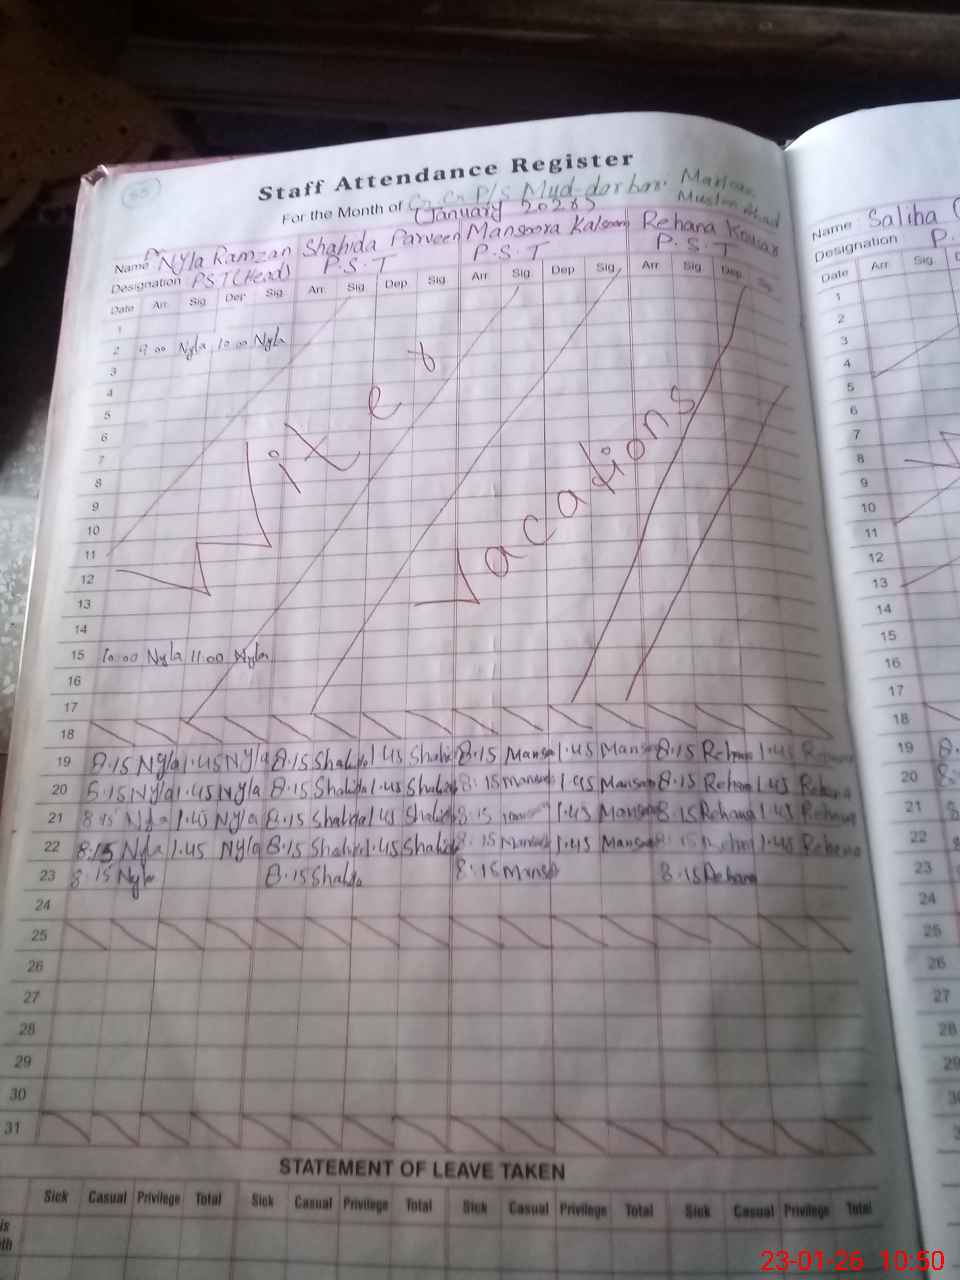 Staff Attendance Register
For the Month of P/S Mud-darbar.
January
Name Nyla Ramzan Shahida Parveen Mansoora Kalsoom Rehana Kousar
Designation PST (Head) P.S.T P.S.T P.S.T
Date Arr. Sig. Dep. Sig. Arr. Sig. Dep. Sig. Arr. Sig. Dep. Sig. Arr. Sig. Dep. Sig.
1
2 9:00 Nyla 10:00 Nyla
3
4
5
6
7
8
9
10
11
12
13
14
15 10:00 Nyla 11:00 Nyla
16
17
Winter Vacations
18
19 8.15 Nyla 1.45 Nyla 8.15 Shahida 1.45 Shahida 8.15 Mansoo 1.45 Mansoo 8.15 Rehana 1.45 Rehana
20 8.15 Nyla 1.45 Nyla 8.15 Shahida 1.45 Shahida 8.15 Mansoo 1.45 Mansoo 8.15 Rehana 1.45 Rehana
21 8.15 Nyla 1.45 Nyla 8.15 Shahida 1.45 Shahida 8.15 1.45 Mansoo 8.15 Rehana 1.45 Rehana
22 8.15 Nyla 1.45 Nyla 8.15 Shahida 1.45 Shahida 8.15 Mansoo 1.45 Mansoo 8.15 Rehana 1.45 Rehana
23 8.15 Nyla 8.15 Shahida 8.15 Mansoo 8.15 Rehana
24
25
26
27
28
29
30
31
STATEMENT OF LEAVE TAKEN
Sick Casual Privilege Total Sick Casual Privilege Total Sick Casual Privilege Total Sick Casual Privilege Total
Name Saliha
Designation P.
Date Arr. Sig.
1
2
3
4
5
6
7
8
9
10
11
12
13
14
15
16
17
18
19 8.
20
21
22
23
24
25
26
27
28
23-01-26 10:50